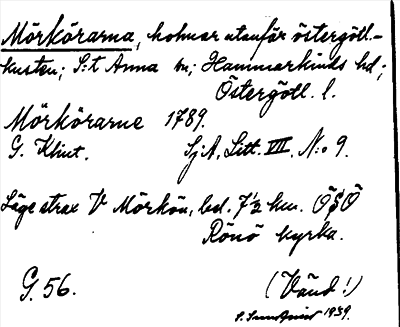 Mörkörarna, holmar utanför östergötl.-
kusten; S:t Anna sn; Hammarkinds hd;
Östergötl. l.
Mörkörarne 1789.
G. Klint. SjA, Litt. VIII. N:o 9.
Läge strax V Mörkön, bel. 7½ km. ÖSÖ
Rönö kyrka.
G. 56. (Vänd!)
1939.